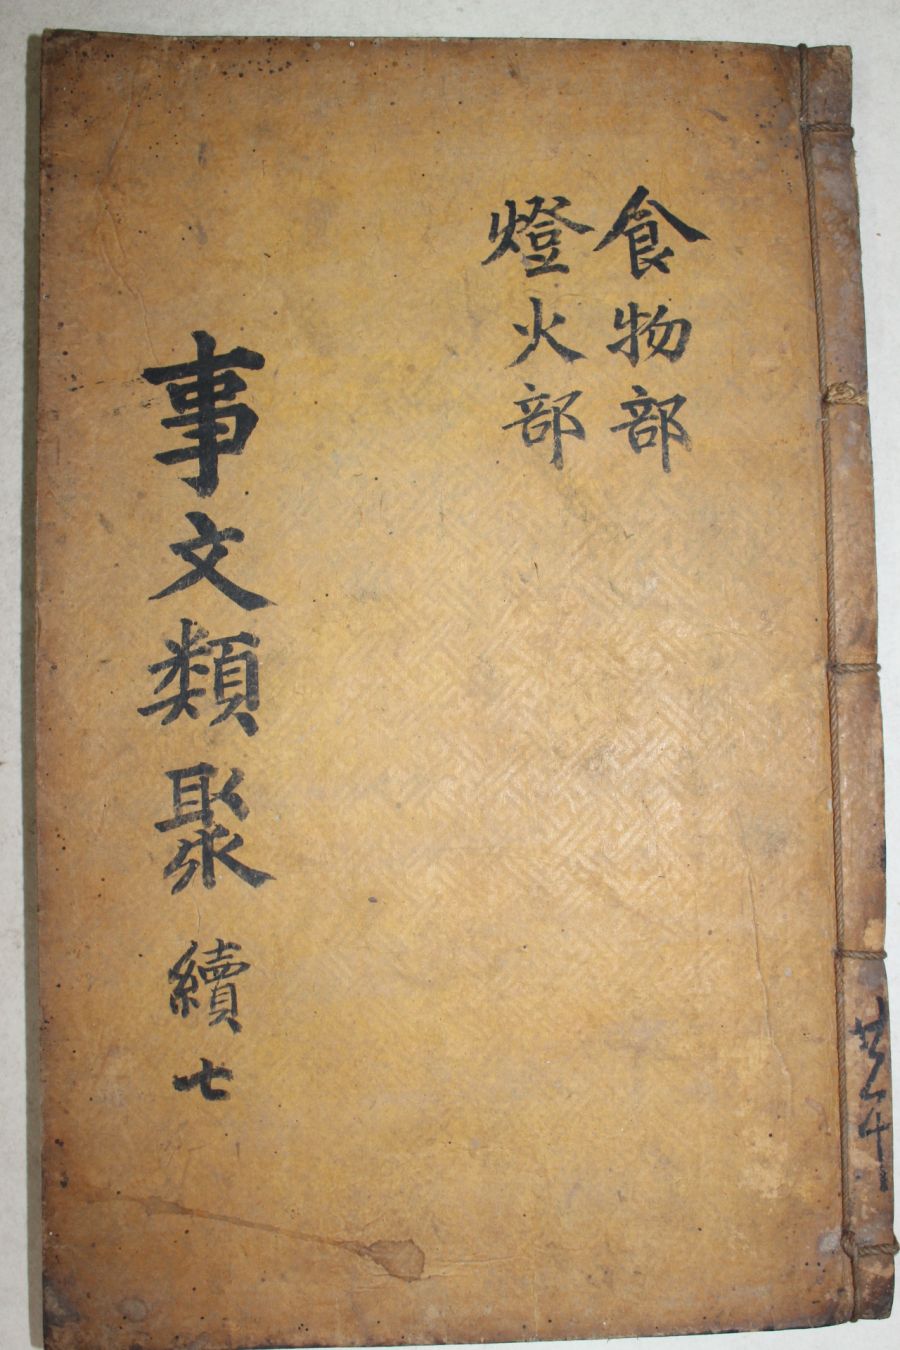 食物部
燈火部
事文類聚 續 七